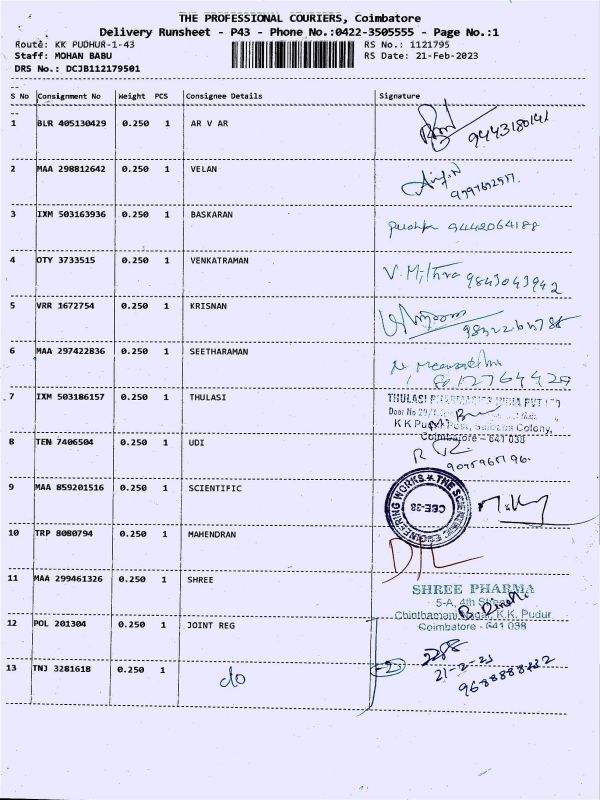 THE PROFESSIONAL COURIERS, Coimbatore
Delivery Runsheet - P43 - Phone No.:0422-3505555 - Page No.:1
Route: KK PUDHUR-1-43 RS No.: 1121795
Staff: MOHAN BABU RS Date: 21-Feb-2023
DRS No.: DCJB112179501
S No Consignment No Weight PCS Consignee Details Signature
1 BLR 405130429 0.250 1 AR V AR 9443180141
2 MAA 298812642 0.250 1 VELAN
3 IXM 503163936 0.250 1 BASKARAN pushpa 9442064188
4 OTY 3733515 0.250 1 VENKATRAMAN V. Mithra 9843043942
5 VRR 1672754 0.250 1 KRISNAN
6 MAA 297422836 0.250 1 SEETHARAMAN
7 IXM 503186157 0.250 1 THULASI THULASI PHARMACIES INDIA PVT LTD
Door No
K K Pudur Post, Saibaba Colony,
Coimbatore - 641 038
8 TEN 7406504 0.250 1 UDI
9 MAA 859201516 0.250 1 SCIENTIFIC THE SCIENTIFIC ENGINEERING WORKS CBE-38
10 TRP 8080794 0.250 1 MAHENDRAN
11 MAA 299461326 0.250 1 SHREE SHREE PHARMA
5-A, 4th Street
Chinthamani Nagar, K.K. Pudur
Coimbatore - 641 038
12 POL 201304 0.250 1 JOINT REG
13 TNJ 3281618 0.250 1 do 21-2-23